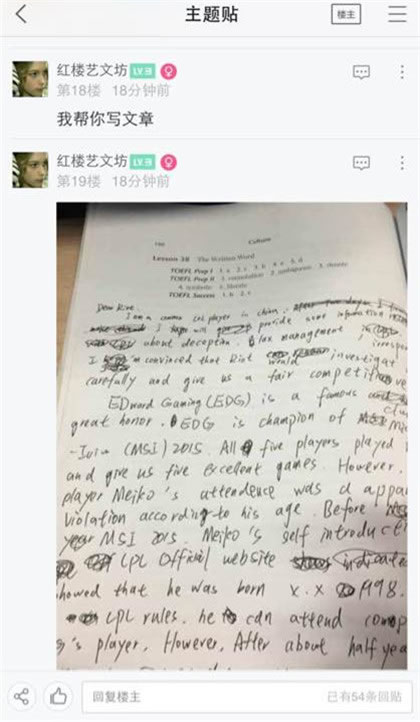 主题贴
楼主
红楼艺文坊 LV.9
第18楼 18分钟前
我帮你写文章
红楼艺文坊 LV.9
第19楼 18分钟前
Culture
Lesson 38 The Written Word
TOEFL Prep I 1. c 2. c 3. b 4. e 5. d
TOEFL Prep II
TOEFL Success 1. b 2. c
Dear Riot,
I am a common LOL player in china.
I will provide some information
about deception, lax management, irresp
I convinced that Riot would investigat
carefully and give us a fair competitive
EDward Gaming (EDG) is a famous clu
great honor. EDG is champion of Mid
(MSI) 2015. All five players played
and give us five excellent games. However,
player Meiko's attendence was a appa
Violation according to his age. Before
MSI 2015. Meiko's self introducti
LPL Official website indicate
howed that he was born x.x 1998.
LPL rules. he can attend comp
's player. However, After about half yea
回复楼主
已有54条回贴